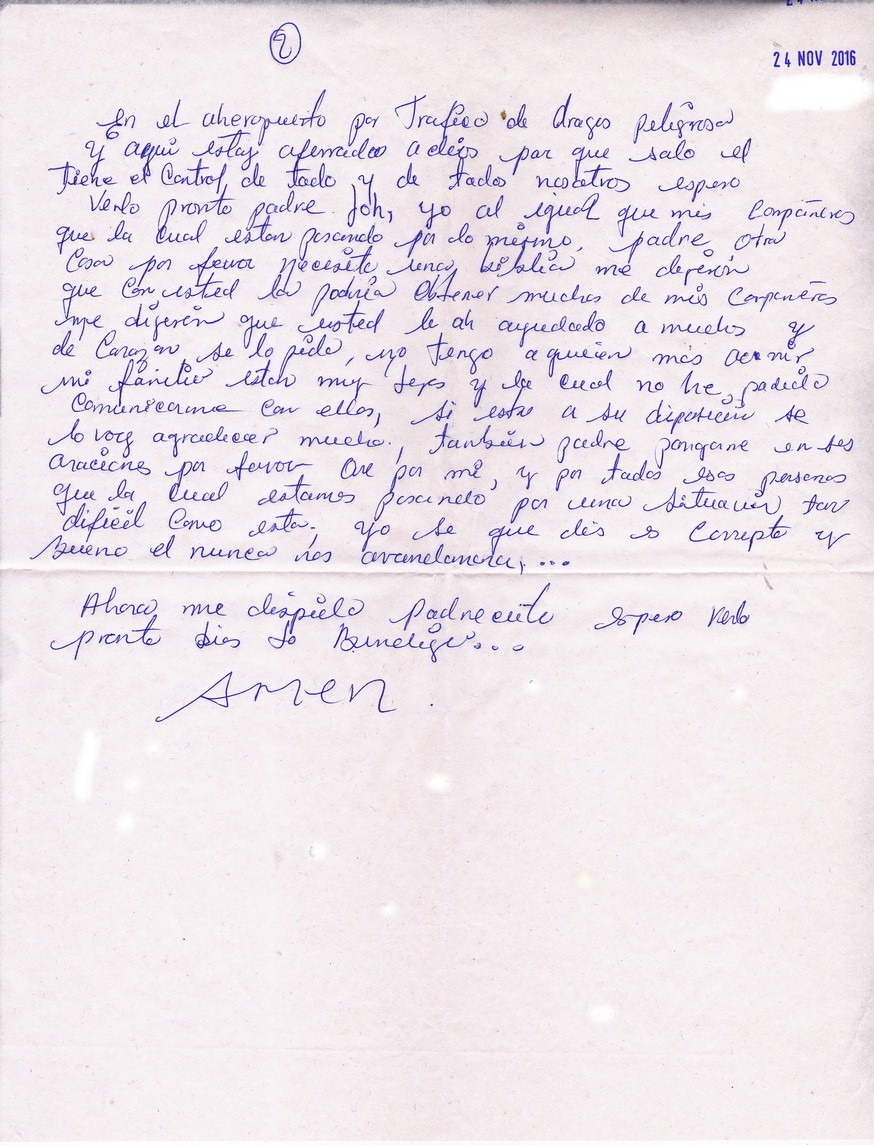 2
24 NOV 2016
En el aheropuerto por Trafico de drogas peligrosa
Y aqui estoy aferrado a dios por que solo el
tiene el Control de todo y de todos nosotros espero
Verlo pronto padre Joh, yo al igual que mis Conpañeros
que la cual estan pasando por lo mismo, padre otra
Cosa por favor necesito una biblia me dijeron
que con usted la podria obtener muchos de mis Conpañeros
me dijeron que usted le ah ayudado a muchos y
de Corazon se lo pido, no tengo a quien más
mi familia estan muy lejos y la cual no he podido
Comunicarme con ellos, si esta a su disposición se
lo voy agradecer mucho., también padre pongame en sus
oraciones por favor Ore por mi, y por todas esas personas
que la cual estamos pasando por una situación tan
dificil Como esta; yo se que dios es y
bueno el nunca nos avandonara, ...
Ahora me despido Padrecito espero verlo
pronto Dios lo Bendiga...
Amen.